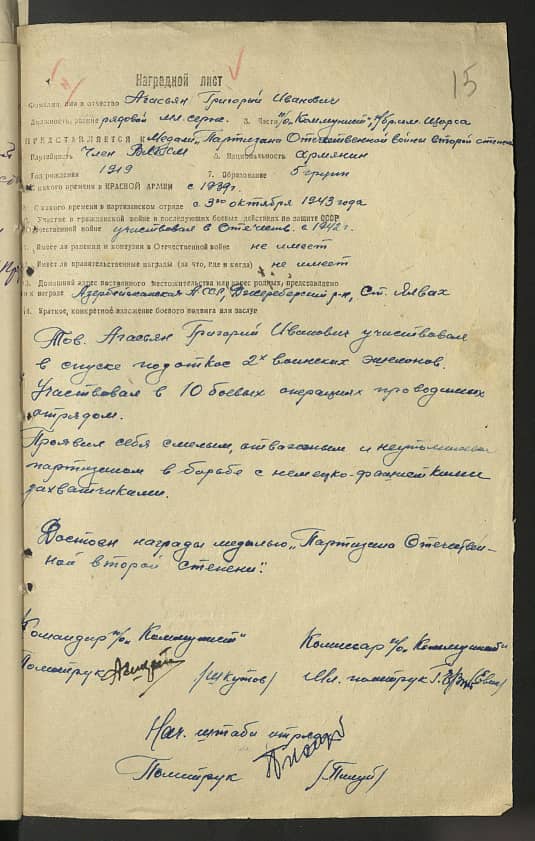 15
Наградной лист
Фамилия, имя и отчество Агасьян Григорий Иванович
Должность, звание рядовой мл. серж. 3. Часть п/о „Коммунист" п/бр. им. Щорса
ПРЕДСТАВЛЯЕТСЯ К Медали „Партизана Отечественной войны второй степени
Партийность Член ВЛКСМ 5. Национальность Армянин
Год рождения 1919 7. Образование 5 групп
С какого времени в КРАСНОЙ АРМИИ с 1939г.
С какого времени в партизанском отряде с 3го октября 1943 года
Участие в гражданской войне и последующих боевых действиях по защите СССР
Отечественной войне участвовал в Отечеств. с 1942г.
Имеет ли ранения и контузии в Отечественной войне не имеет
Имеет ли правительственные награды (за что, где и когда) не имеет
Домашний адрес постоянного местожительства или адрес родных, представляемого
к награде Азербейжанская АССР, р-н, Ст.
14. Краткое, конкретное изложение боевого подвига или заслуг
Тов. Агасьян Григорий Иванович участвовал
в спуске под откос 2х воинских эшелонов.
Участвовал в 10 боевых операциях проводимых
отрядом.
Проявил себя смелым, отважным и неутомимым
партизаном в борьбе с немецко-фашисткими
захватчиками.
Достоен награды медалью „Партизана Отечествен-
ной второй степени".
Командир п/о „Коммунист" Комиссар п/о „Коммунист"
Политрук /Шкутов/ Мл. политрук
Нач. штаба отряда
Политрук /Пилуй/